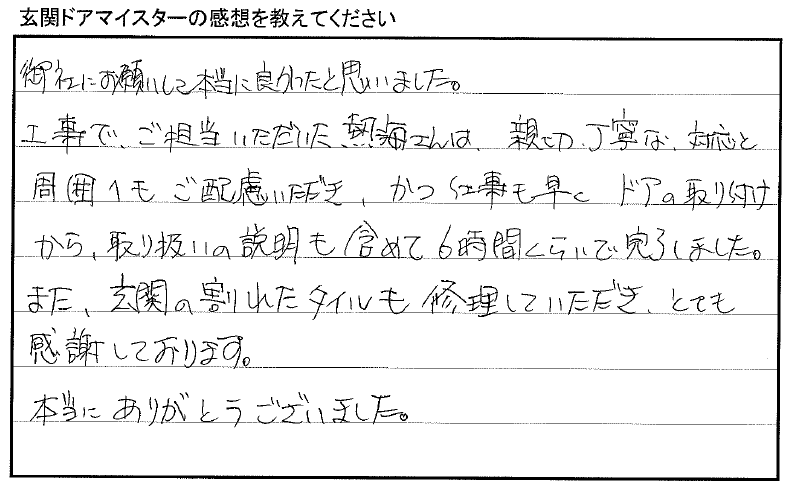 玄関ドアマイスターの感想を教えてください
御社にお願いして本当に良かったと思いました。
工事で、ご担当いただいた熱海さんは、親切、丁寧な、対応と
周囲へもご配慮いただき、かつ仕事も早く ドアの取り付け
から、取り扱いの説明も含めて6時間くらいで完了しました。
また、玄関の割れたタイルも修理していただき、とても
感謝しております。
本当にありがとうございました。